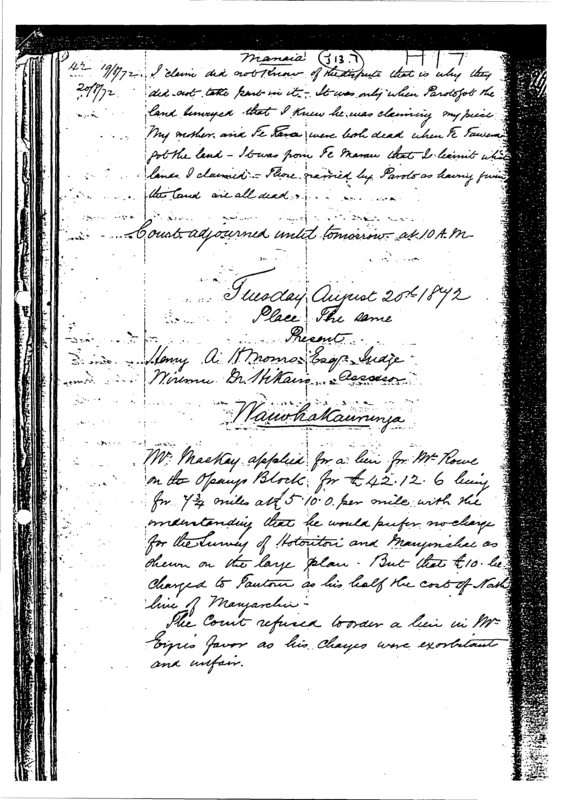 Manaia J 13.7 H 17
4th 19/8/72
20/8/72
I claim did not know of the dispute that is why they
did not take part in it. It was only when Paroto got the
land surveyed that I knew he was claiming my piece
My mother and Te Rara were both dead when Te
got the land - It was from Te Marau that I learnt what
lands I claimed - Those named by Paroto as having given
the land are all dead.
Court adjourned until tomorrow at 10 A.M
Tuesday August 20th 1872
Place The same
Present
Henry A. H Monro Esqr Judge
Wiremu Assessor
Mr. Mackay applied for a lien for Mr Rowe
on the Block for £42.12.6 being
for 7¾ miles at £5.10.0. per mile with the
understanding that he would prefer no charge
for the Survey of and as
shewn on the large plan. But that £10. be
charged to as his half the cost of North
line of
The Court refused to order a lien in Mr
favor as his charges were exorbitant
and unfair.